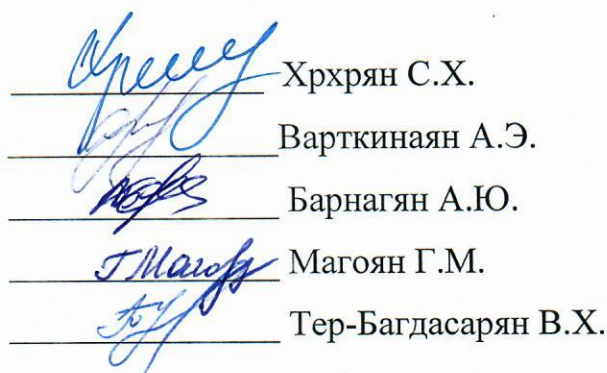 Хрхрян С.Х.
Варткинаян А.Э.
Барнагян А.Ю.
Магоян Г.М.
Тер-Багдасарян В.Х.